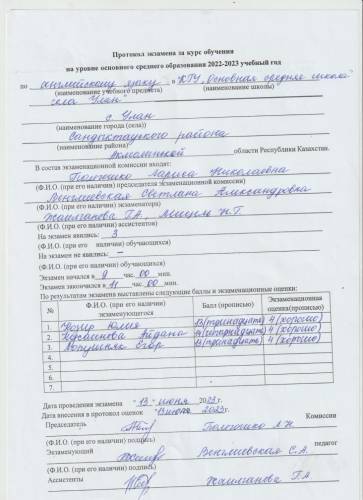 Протокол экзамена за курс обучения
на уровне основного среднего образования 2022-2023 учебный год
по английскому языку в КГУ "Основная средняя школа
(наименование учебного предмета) (наименование школы)
села Улан"
с. Улан
(наименование города (села))
Сандыктауского района
(наименование района)
Акмолинской области Республики Казахстан.
В состав экзаменационной комиссии входят:
Полежико Лариса Николаевна
(Ф.И.О. (при его наличии) председателя экзаменационной комиссии)
Светлана Александровна
(Ф.И.О. (при его наличии) экзаменатора)
Жашпанова Г.А., Мицель Н.Г.
(Ф.И.О. (при его наличии) ассистентов)
На экзамен явились: 3
(Ф.И.О. (при его наличии) обучающихся)
На экзамен не явились: —
(Ф.И.О. (при его наличии) обучающихся)
Экзамен начался в 9 час. 00 мин.
Экзамен закончился в 11 час. 00 мин.
По результатам экзамена выставлены следующие баллы и экзаменационные оценки:
№ Ф.И.О. (при его наличии) экзаменующегося Балл (прописью) Экзаменационная оценка(прописью)
1. Юлия 13(тринадцать) 4 (хорошо)
2. Айдана 4 (хорошо)
3. Егор 13(тринадцать) 4 (хорошо)
4.
5.
6.
7.
Дата проведения экзамена "13" июня 2023г.
Дата внесения в протокол оценок 13 июня 2023г.
Председатель Комиссии
Полежико Л.Н.
(Ф.И.О. (при его наличии) подпись)
Экзаменующий педагог
С.А.
(Ф.И.О. (при его наличии) подпись)
Ассистенты Жашпанова Г.А.